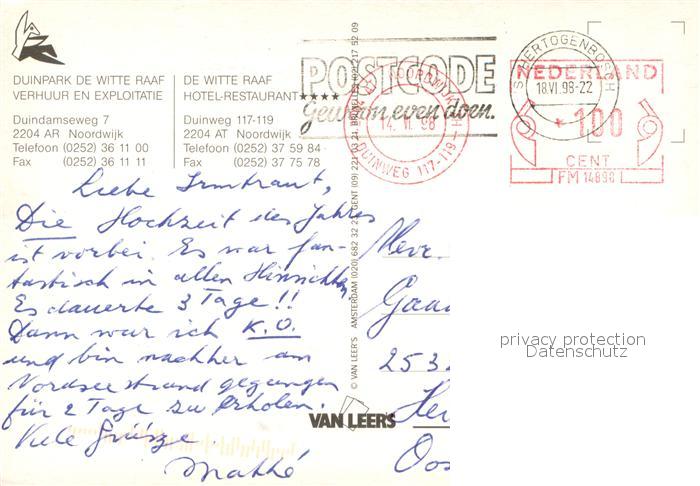 DUINPARK DE WITTE RAAF
VERHUUR EN EXPLOITATIE
Duindamseweg 7
2204 AR Noordwijk
Telefoon (0252) 36 11 00
Fax (0252) 36 11 11
DE WITTE RAAF
HOTEL-RESTAURANT★★★★
Duinweg 117-119
2204 AT Noordwijk
Telefoon (0252) 37 59 84
Fax (0252) 37 75 78
POSTCODE
Gewoon even doen.
NOORDWIJK
14. VI. 98
DUINWEG 117-119
'S-HERTOGENBOSCH
18.VI.98-22
NEDERLAND
100
CENT
FM 14898
© VAN LEER'S AMSTERDAM (020) 682 32 23 GENT (09) 221 03 21 BRUXELLES (02) 217 52 09
Liebe Irmtraut,
Die Hochzeit des Jahres
ist vorbei. Es war fan-
tastisch in allen Hinsichten
Es dauerte 3 Tage!!
Dann war ich K.O.
und bin nachher am
Nordseestrand gegangen
für 2 Tage zu erholen.
Viele Grüsze
Mathé
Mevr.
Gaa
253
Oos
VAN LEER'S
privacy protection
Datenschutz